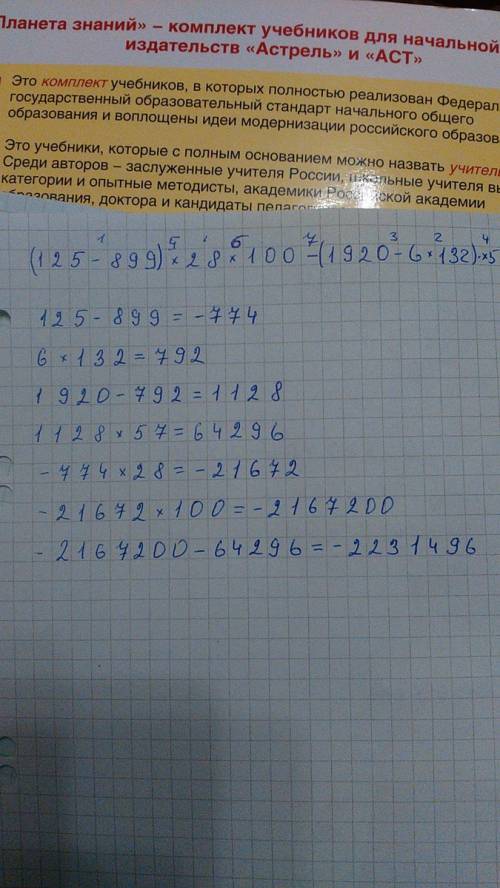 Планета знаний» – комплект учебников для начальной
издательств «Астрель» и «АСТ»
Это комплект учебников, в которых полностью реализован Федерал
государственный образовательный стандарт начального общего
образования и воплощены идеи модернизации российского образов
Это учебники, которые с полным основанием можно назвать учитель
Среди авторов – заслуженные учителя России, школьные учителя вы
категории и опытные методисты, академики Российской академии
образования, доктора и кандидаты педагог
1 5 6 7 3 2 4
(125-899)×28×100-(1920-6×132)×5
125-899=-774
6×132=792
1920-792=1128
1128×57=64296
-774×28=-21672
-21672×100=-2167200
-2167200-64296=-2231496